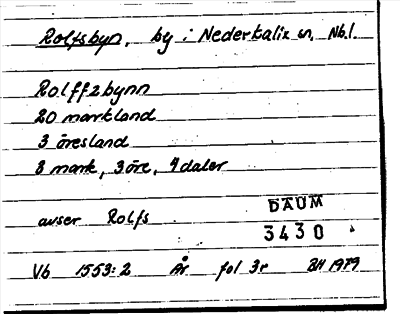 Rolfsbyn, by i Nederkalix sn, Nb.l.
Rolffzbynn
20 markland
3 öresland
8 mark, 3 öre, 4 daler
avser Rolfs
DAUM
3430
Vb 1553:2 År fol 3r BH 1979